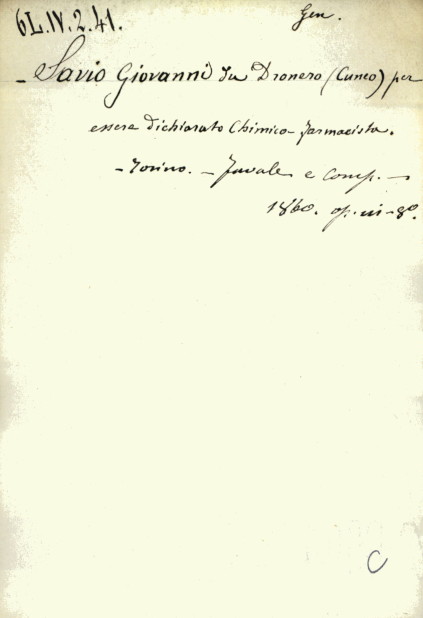 6L.IV.2.41.
Gen.
- Savio Giovanni da Dronero (Cuneo) per
essere dichiarato Chimico-farmacista.
- Torino. - Favale e Comp. -
1860. op. in-8º.
C